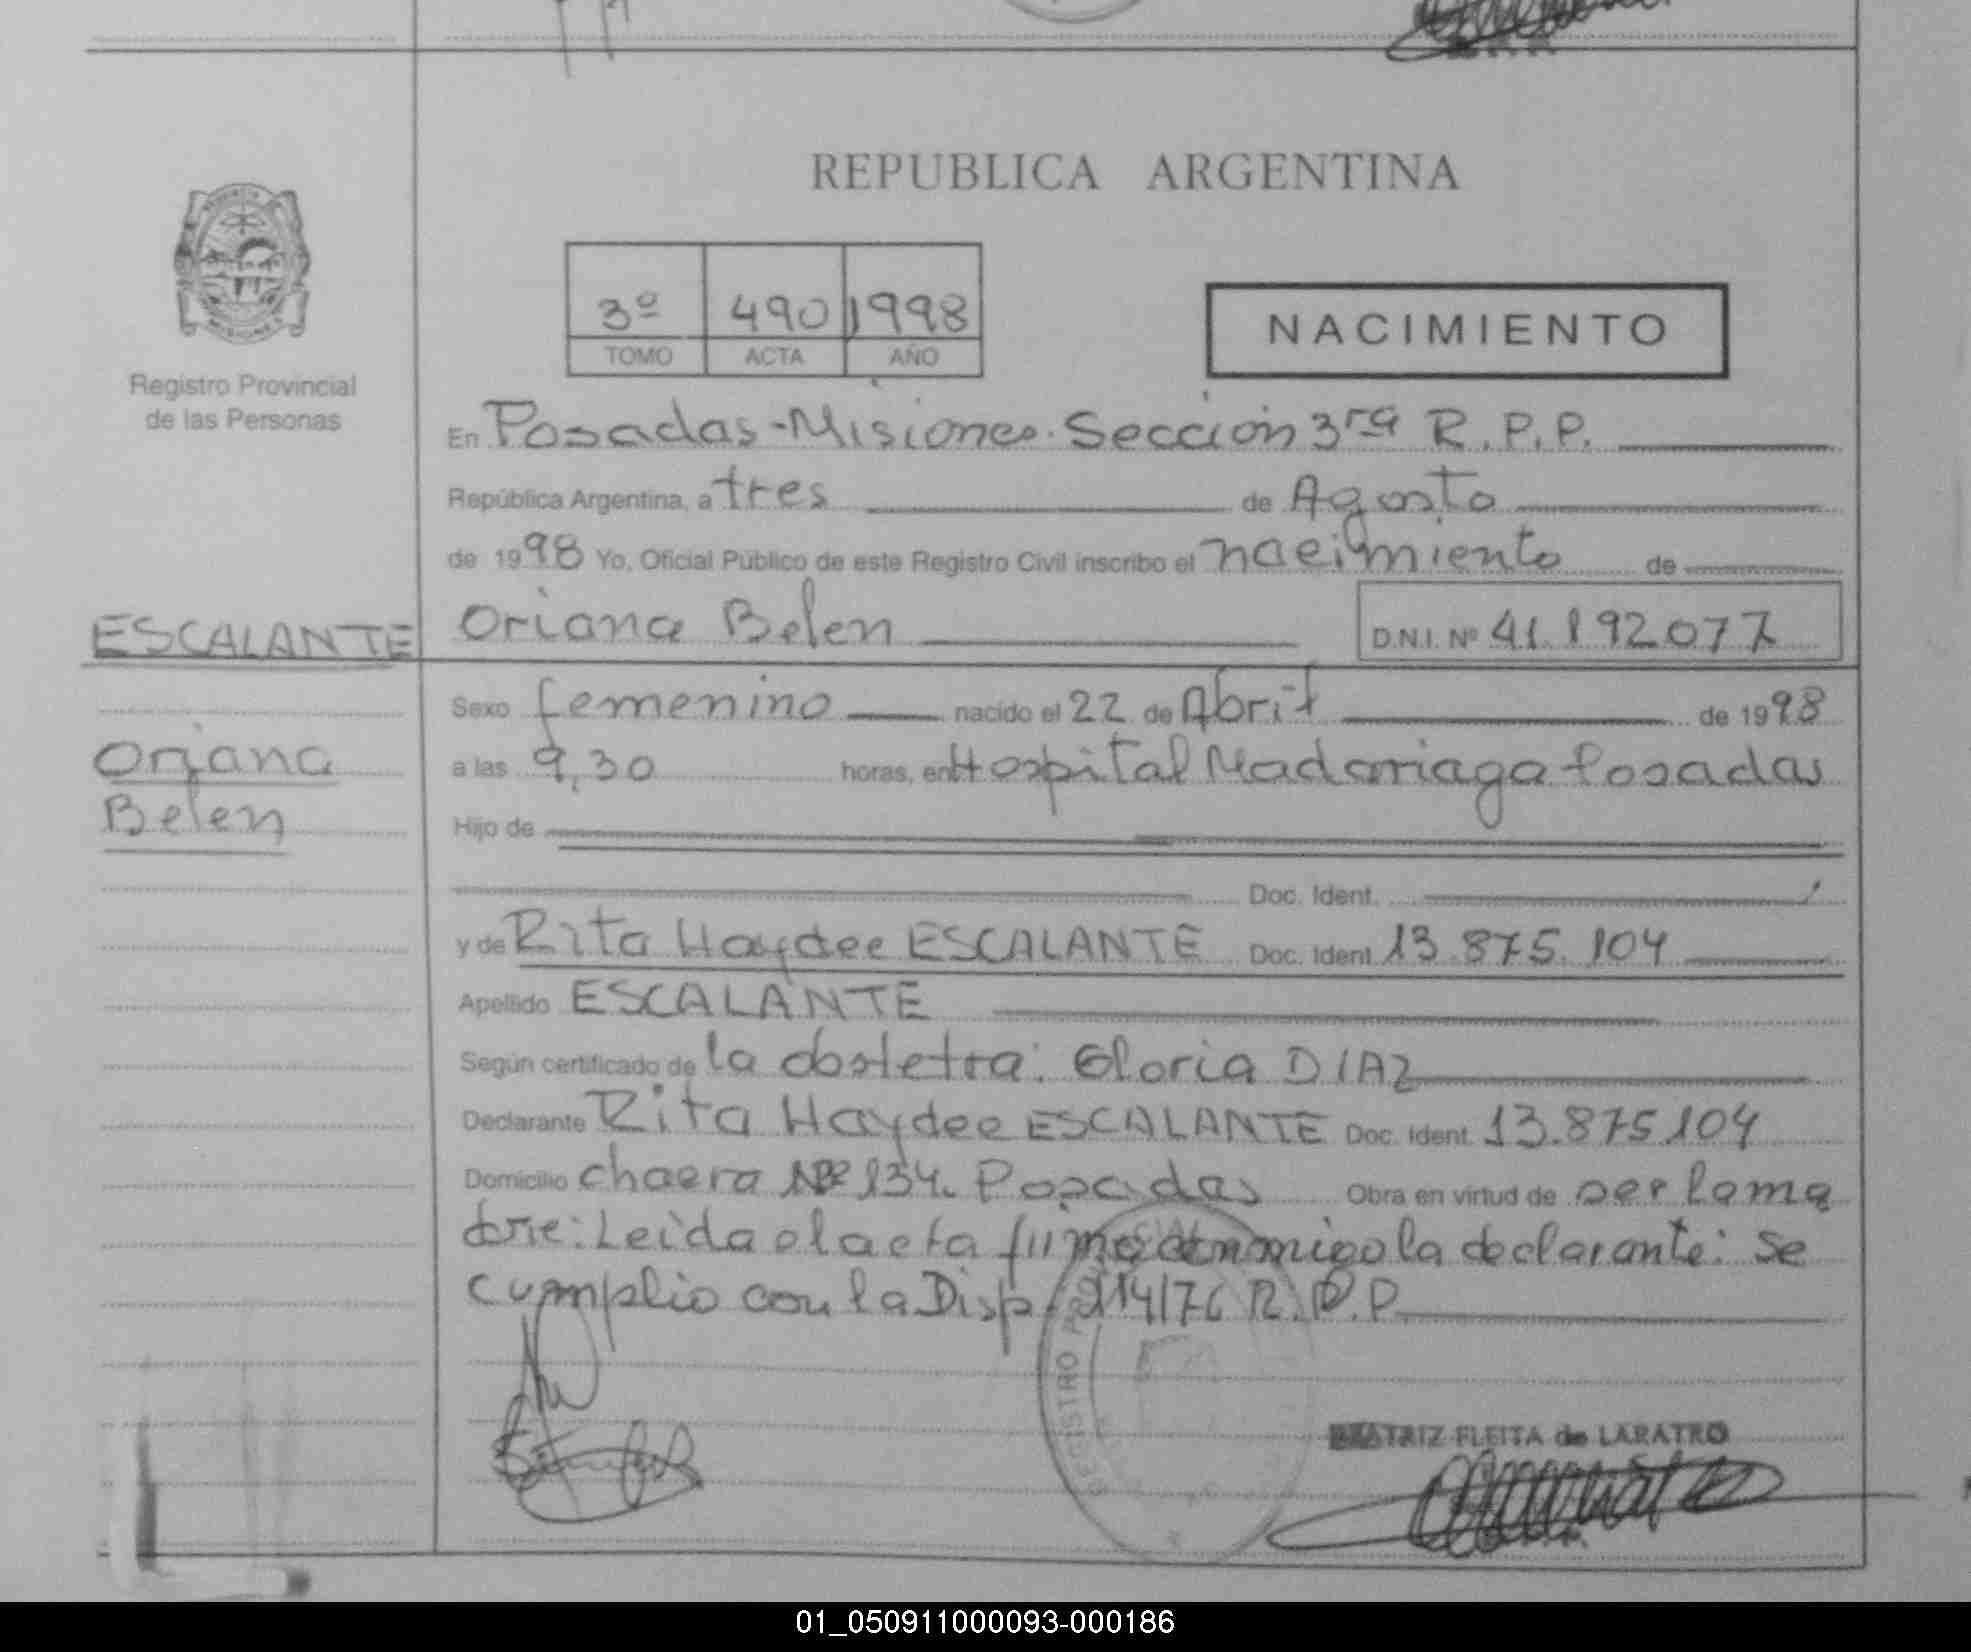 REPUBLICA ARGENTINA
3º 490 1998
TOMO ACTA AÑO
NACIMIENTO
Registro Provincial
de las Personas
En Posadas-Misiones. Sección 3ra R.P.P.
República Argentina, a tres de Agosto
de 1998 Yo, Oficial Público de este Registro Civil inscribo el nacimiento de
ESCALANTE
Oriana Belen
Oriana Belen D.N.I. Nº 41.192.077
Sexo femenino nacido el 22 de Abril de 1998
a las 9,30 horas, en Hospital Madariaga Posadas
Hijo de
Doc. Ident.
y de Rita Haydee ESCALANTE Doc. Ident. 13.875.104
Apellido ESCALANTE
Según certificado de la obstetra: Gloria DIAZ
Declarante Rita Haydee ESCALANTE Doc. Ident. 13.875.104
Domicilio chacra Nº 134. Posadas Obra en virtud de ser la ma
dre: Leida el acta firma conmigo la declarante: Se
cumplio con la Disp. 214/76 R.P.P.
REGISTRO
BEATRIZ FLEITA de LARATRO
01_050911000093-000186